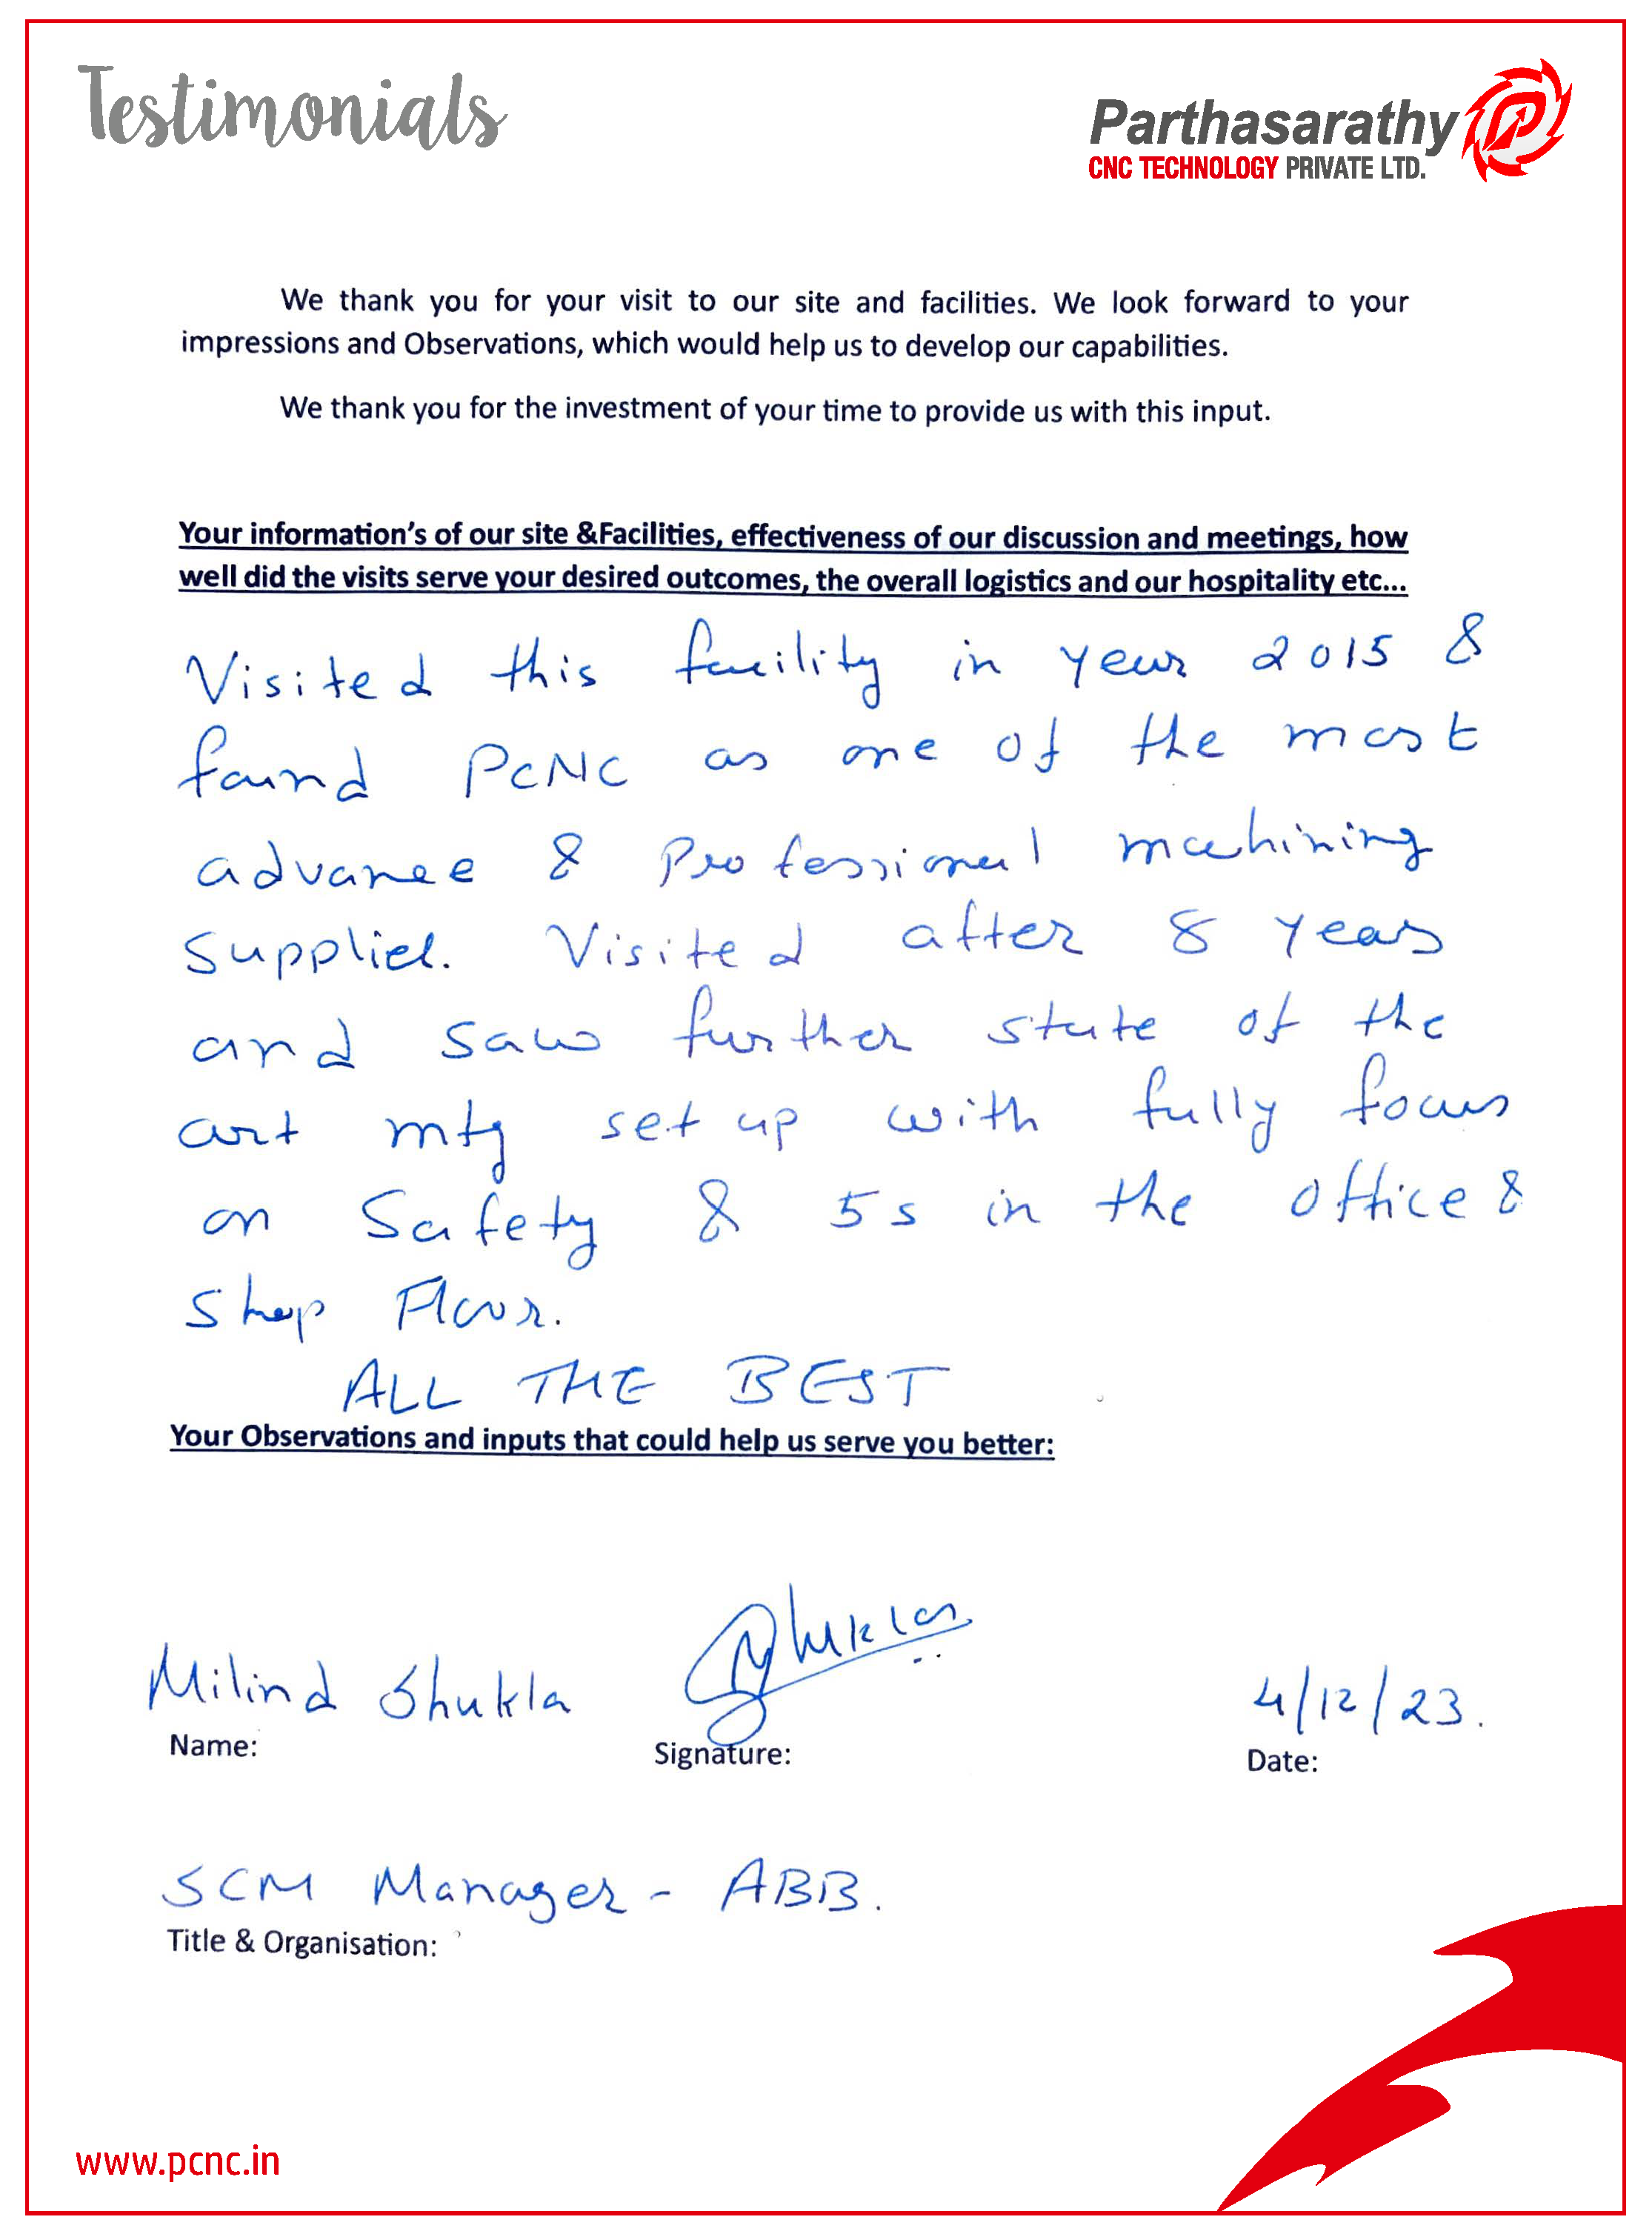 Testimonials
Parthasarathy
CNC TECHNOLOGY PRIVATE LTD.
We thank you for your visit to our site and facilities. We look forward to your
impressions and Observations, which would help us to develop our capabilities.
We thank you for the investment of your time to provide us with this input.
Your information's of our site &Facilities, effectiveness of our discussion and meetings, how
well did the visits serve your desired outcomes, the overall logistics and our hospitality etc...
Visited this facility in year 2015 &
found PCNC as one of the most
advance & Professional machining
Supplier. Visited after 8 years
and saw further state of the
art mfg set up with fully focus
on Safety & 5s in the office &
Shop Floor.
ALL THE BEST
Your Observations and inputs that could help us serve you better:
Milind Shukla
Shukla
4/12/23.
Name:
Signature:
Date:
SCM Manager - ABB.
Title & Organisation:
www.pcnc.in